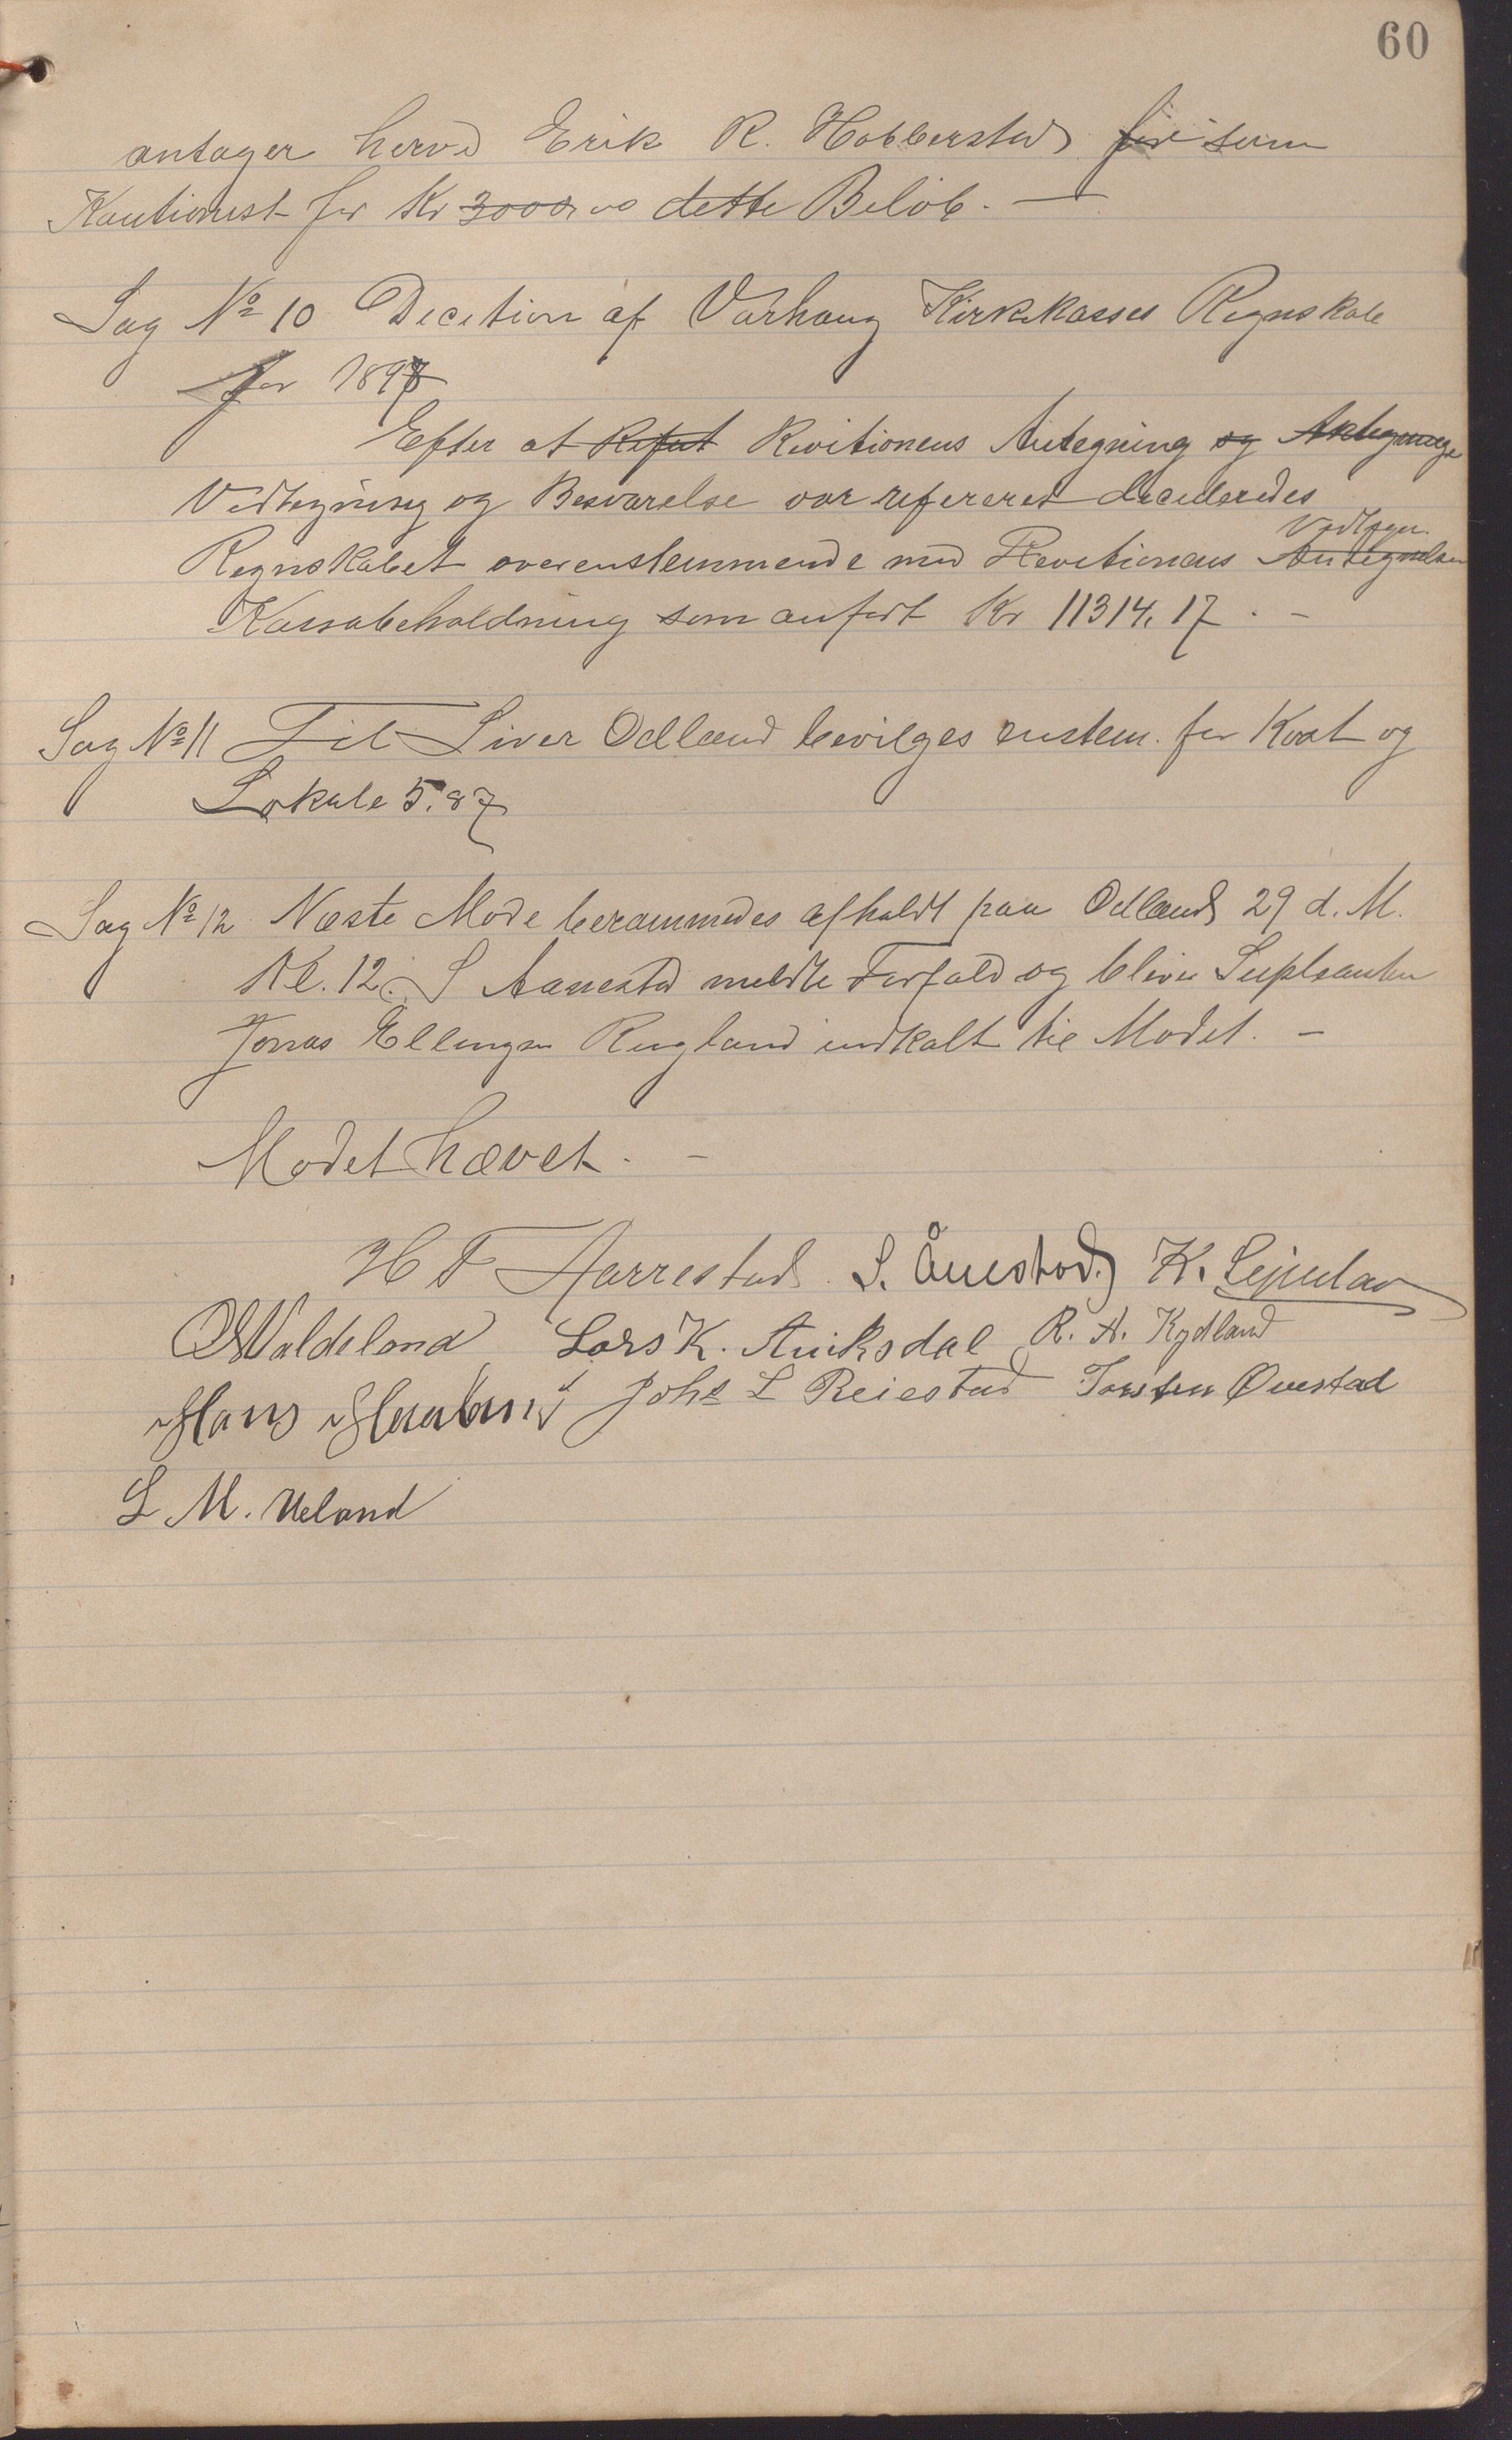 60
antager herved Erik R. Hobberstad for som
Kautionist for Kr 3000,00 dette Beløb. —
Sag № 10 Decition af Varhaug Kirkekasses Regnskab
for 1897
Efter at Revitionens Antegning og Antegninge
Vedtegning og Besvarelse var refereret decideredes
Vedtegn.
Regnskabet overenstemmende med Revitionens Antegnelser
Kassabeholdning som anført Kr 11314,17. –
Sag № 11 Til Siver Odland bevilges enstem. for Kost og
Lokale 5.87
Sag № 12 Næste Møde berammedes afholdt paa Odland 29 d. M.
Kl. 12. S Aanestad meldte Forfald og bliver Supleanten
Jonas Ellingsen Rugland indkalt til Mødet. –
Mødet hævet. –
H T Harrestad. S. Ånestad. K.
O Valdeland Lars K. Auksdal R. A. Kydland
Hans Johs L Reiestad Torsten Ouestad
L M. Ueland